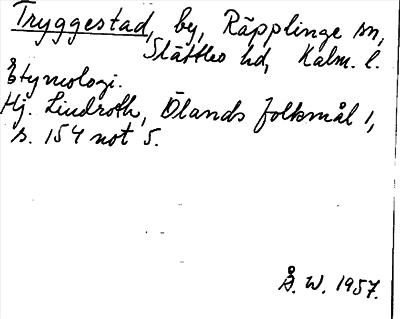 Tryggestad, by, Räpplinge sn,
Slättbo hd, Kalm. l.
Etymologi.
Hj. Lindroth, Ölands folkmål 1,
s. 154 not 5.
Å. W. 1957.